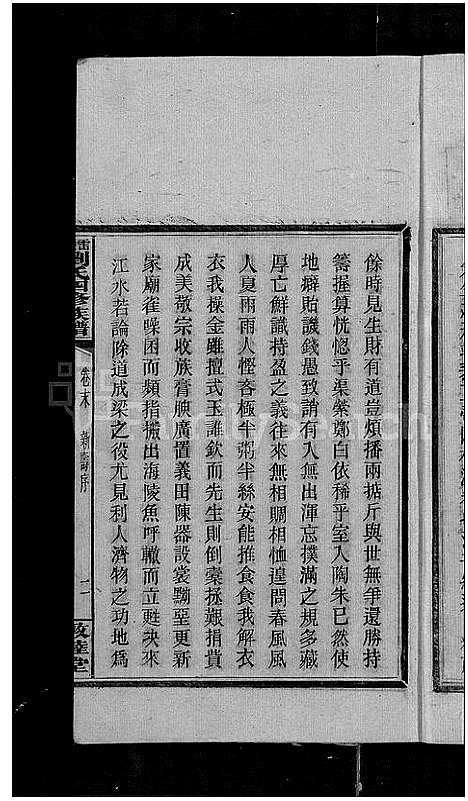 餘時見生財有道豈煩播兩掂斤與世無爭還勝持
籌握算恍惚乎渠紫鄭白依稀乎室入陶朱已然使
地癖貽譏錢愚致誚有入無出渾忘撲滿之規多藏
厚亡鮮識持盈之義往來無相賙相恤遑問春風風
人夏雨雨人慳吝極半粥半絲安能推食食我解衣
衣我操金雖擅式玉誰欽而先生則倒橐拯艱捐貲
成美敬宗收族膏腴廣置義田陳器設裳黝堊更新
家廟雀噪困而頻指搬出海陵魚呼轍而立甦決來
江水若論除道成梁之役尤見利人濟物之功地爲
劉氏四修族譜
卷末
壽序
二
敦睦堂